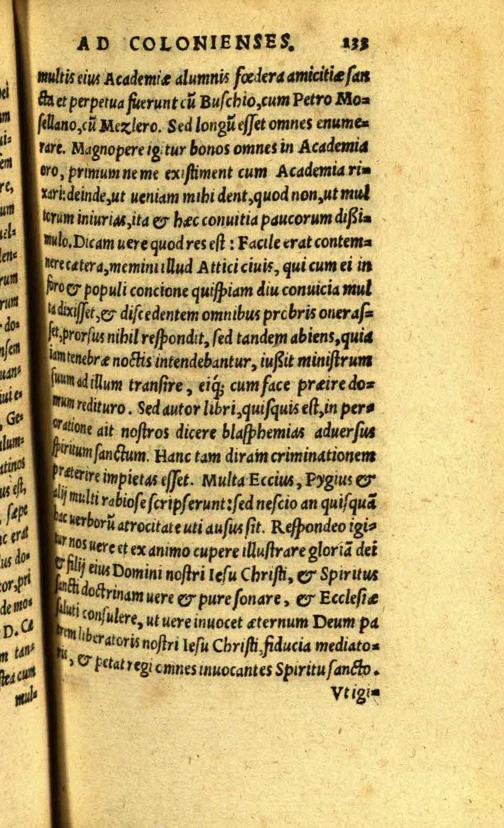 AD COLONIENSES. 133
multis eius Academiæ alumnis fœdera amicitiæ ſan
cta et perpetua fuerunt cũ Buſchio, cum Petro Mo=
ſellano, cũ Mezlero. Sed longũ eſſet omnes enume=
rare. Magnopere igitur bonos omnes in Academia
oro, primum ne me exiſtiment cum Academia ri=
xari: deinde, ut ueniam mihi dent, quod non, ut mul
torum iniurias, ita & hæc conuitia paucorum dißi=
mulo. Dicam uere quod res eſt: Facile erat contem=
nere cætera, memini illud Attici ciuis, qui cum ei in
foro & populi concione quiſpiam diu conuicia mul
ta dixiſſet, & diſcedentem omnibus probris oneraſ=
ſet, prorſus nihil reſpondit, sed tandem abiens, quia
iam tenebræ noctis intendebantur, iußit miniſtrum
ſuum ad illum tranſire, eiq; cum face præire do=
mum redituro. Sed autor libri, quiſquis eſt, in per=
oratione ait noſtros dicere blaſphemias aduerſus
ſpiritum ſanctum. Hanc tam diram criminationem
præterire impietas eſſet. Multa Eccius, Pygius &
alij multi rabioſe ſcripſerunt: ſed neſcio an quiſquã
hac uerborũ atrocitate uti auſus ſit. Reſpondeo igi=
tur nos uere et ex animo cupere illuſtrare gloriã dei
& filij eius Domini noſtri Ieſu Chriſti, & Spiritus
ſancti doctrinam uere & pure ſonare, & Eccleſiæ
ſaluti conſulere, ut uere inuocet æternum Deum pa
trem liberatoris noſtri Ieſu Chriſti, fiducia mediato=
ris, & petat regi omnes inuocantes Spiritu ſancto.
Vt igi=